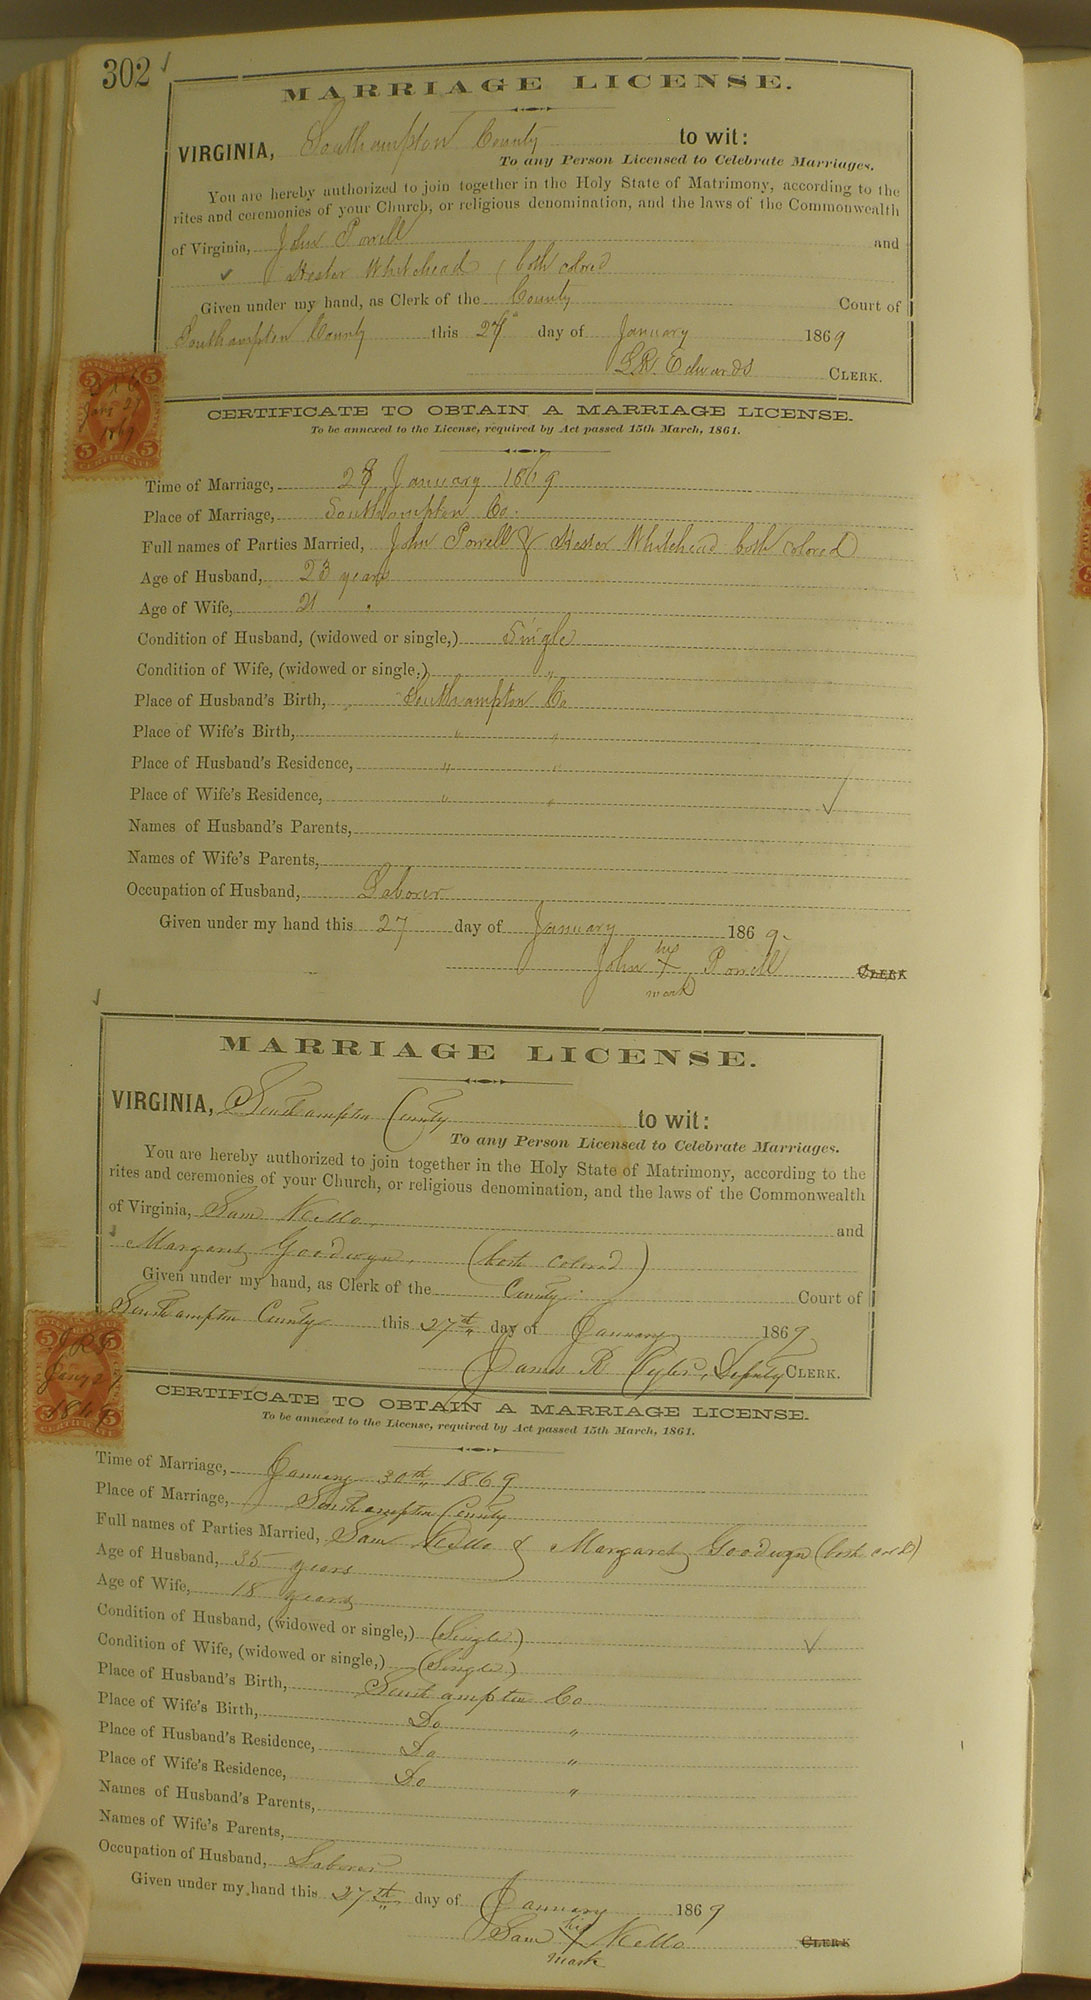 302
MARRIAGE LICENSE.
VIRGINIA, Southampton County to wit:
To any Person Licensed to Celebrate Marriages.
You are hereby authorized to join together in the Holy State of Matrimony, according to the
rites and ceremonies of your Church, or religious denomination, and the laws of the Commonwealth
of Virginia, John Powell and
Hester Whitehead (both colored
Given under my hand, as Clerk of the County Court of
Southampton County this 27 day of January 1869
L.R. Edwards CLERK.
5 5
Jany 27
1869
5 5
CERTIFICATE
CERTIFICATE TO OBTAIN A MARRIAGE LICENSE.
To be annexed to the License, required by Act passed 15th March, 1861.
Time of Marriage, 28 January 1869
Place of Marriage, Southampton Co.
Full names of Parties Married, John Powell & Hester Whitehead both colored
Age of Husband, 23 years
Age of Wife, 21 "
Condition of Husband, (widowed or single,) Single
Condition of Wife, (widowed or single,) "
Place of Husband's Birth, Southampton Co
Place of Wife's Birth, " "
Place of Husband's Residence, " "
Place of Wife's Residence, " "
Names of Husband's Parents,
Names of Wife's Parents,
Occupation of Husband, Laborer
Given under my hand this 27 day of January 1869.
his
John X Powell CLERK
mark
MARRIAGE LICENSE.
VIRGINIA, Southampton County to wit:
To any Person Licensed to Celebrate Marriages.
You are hereby authorized to join together in the Holy State of Matrimony, according to the
rites and ceremonies of your Church, or religious denomination, and the laws of the Commonwealth
of Virginia, Sam Kello, and
Margaret Goodwyn, (both colored)
Given under my hand, as Clerk of the County Court of
Southampton County this 27th day of January 1869
James R Tyler, Deputy CLERK.
5 5
Jany 27
1869
5 5
CERTIFICATE
CERTIFICATE TO OBTAIN A MARRIAGE LICENSE.
To be annexed to the License, required by Act passed 15th March, 1861.
Time of Marriage, January 30th, 1869
Place of Marriage, Southampton County
Full names of Parties Married, Sam Kello & Margaret Goodwyn (both cold)
Age of Husband, 35 years
Age of Wife, 18 years
Condition of Husband, (widowed or single,) (Single)
Condition of Wife, (widowed or single,) (Single)
Place of Husband's Birth, Southampton Co
Place of Wife's Birth, Do "
Place of Husband's Residence, Do "
Place of Wife's Residence, Do "
Names of Husband's Parents,
Names of Wife's Parents,
Occupation of Husband, Laborer
Given under my hand this 27th day of January 1869
his
Sam X Kello CLERK
mark